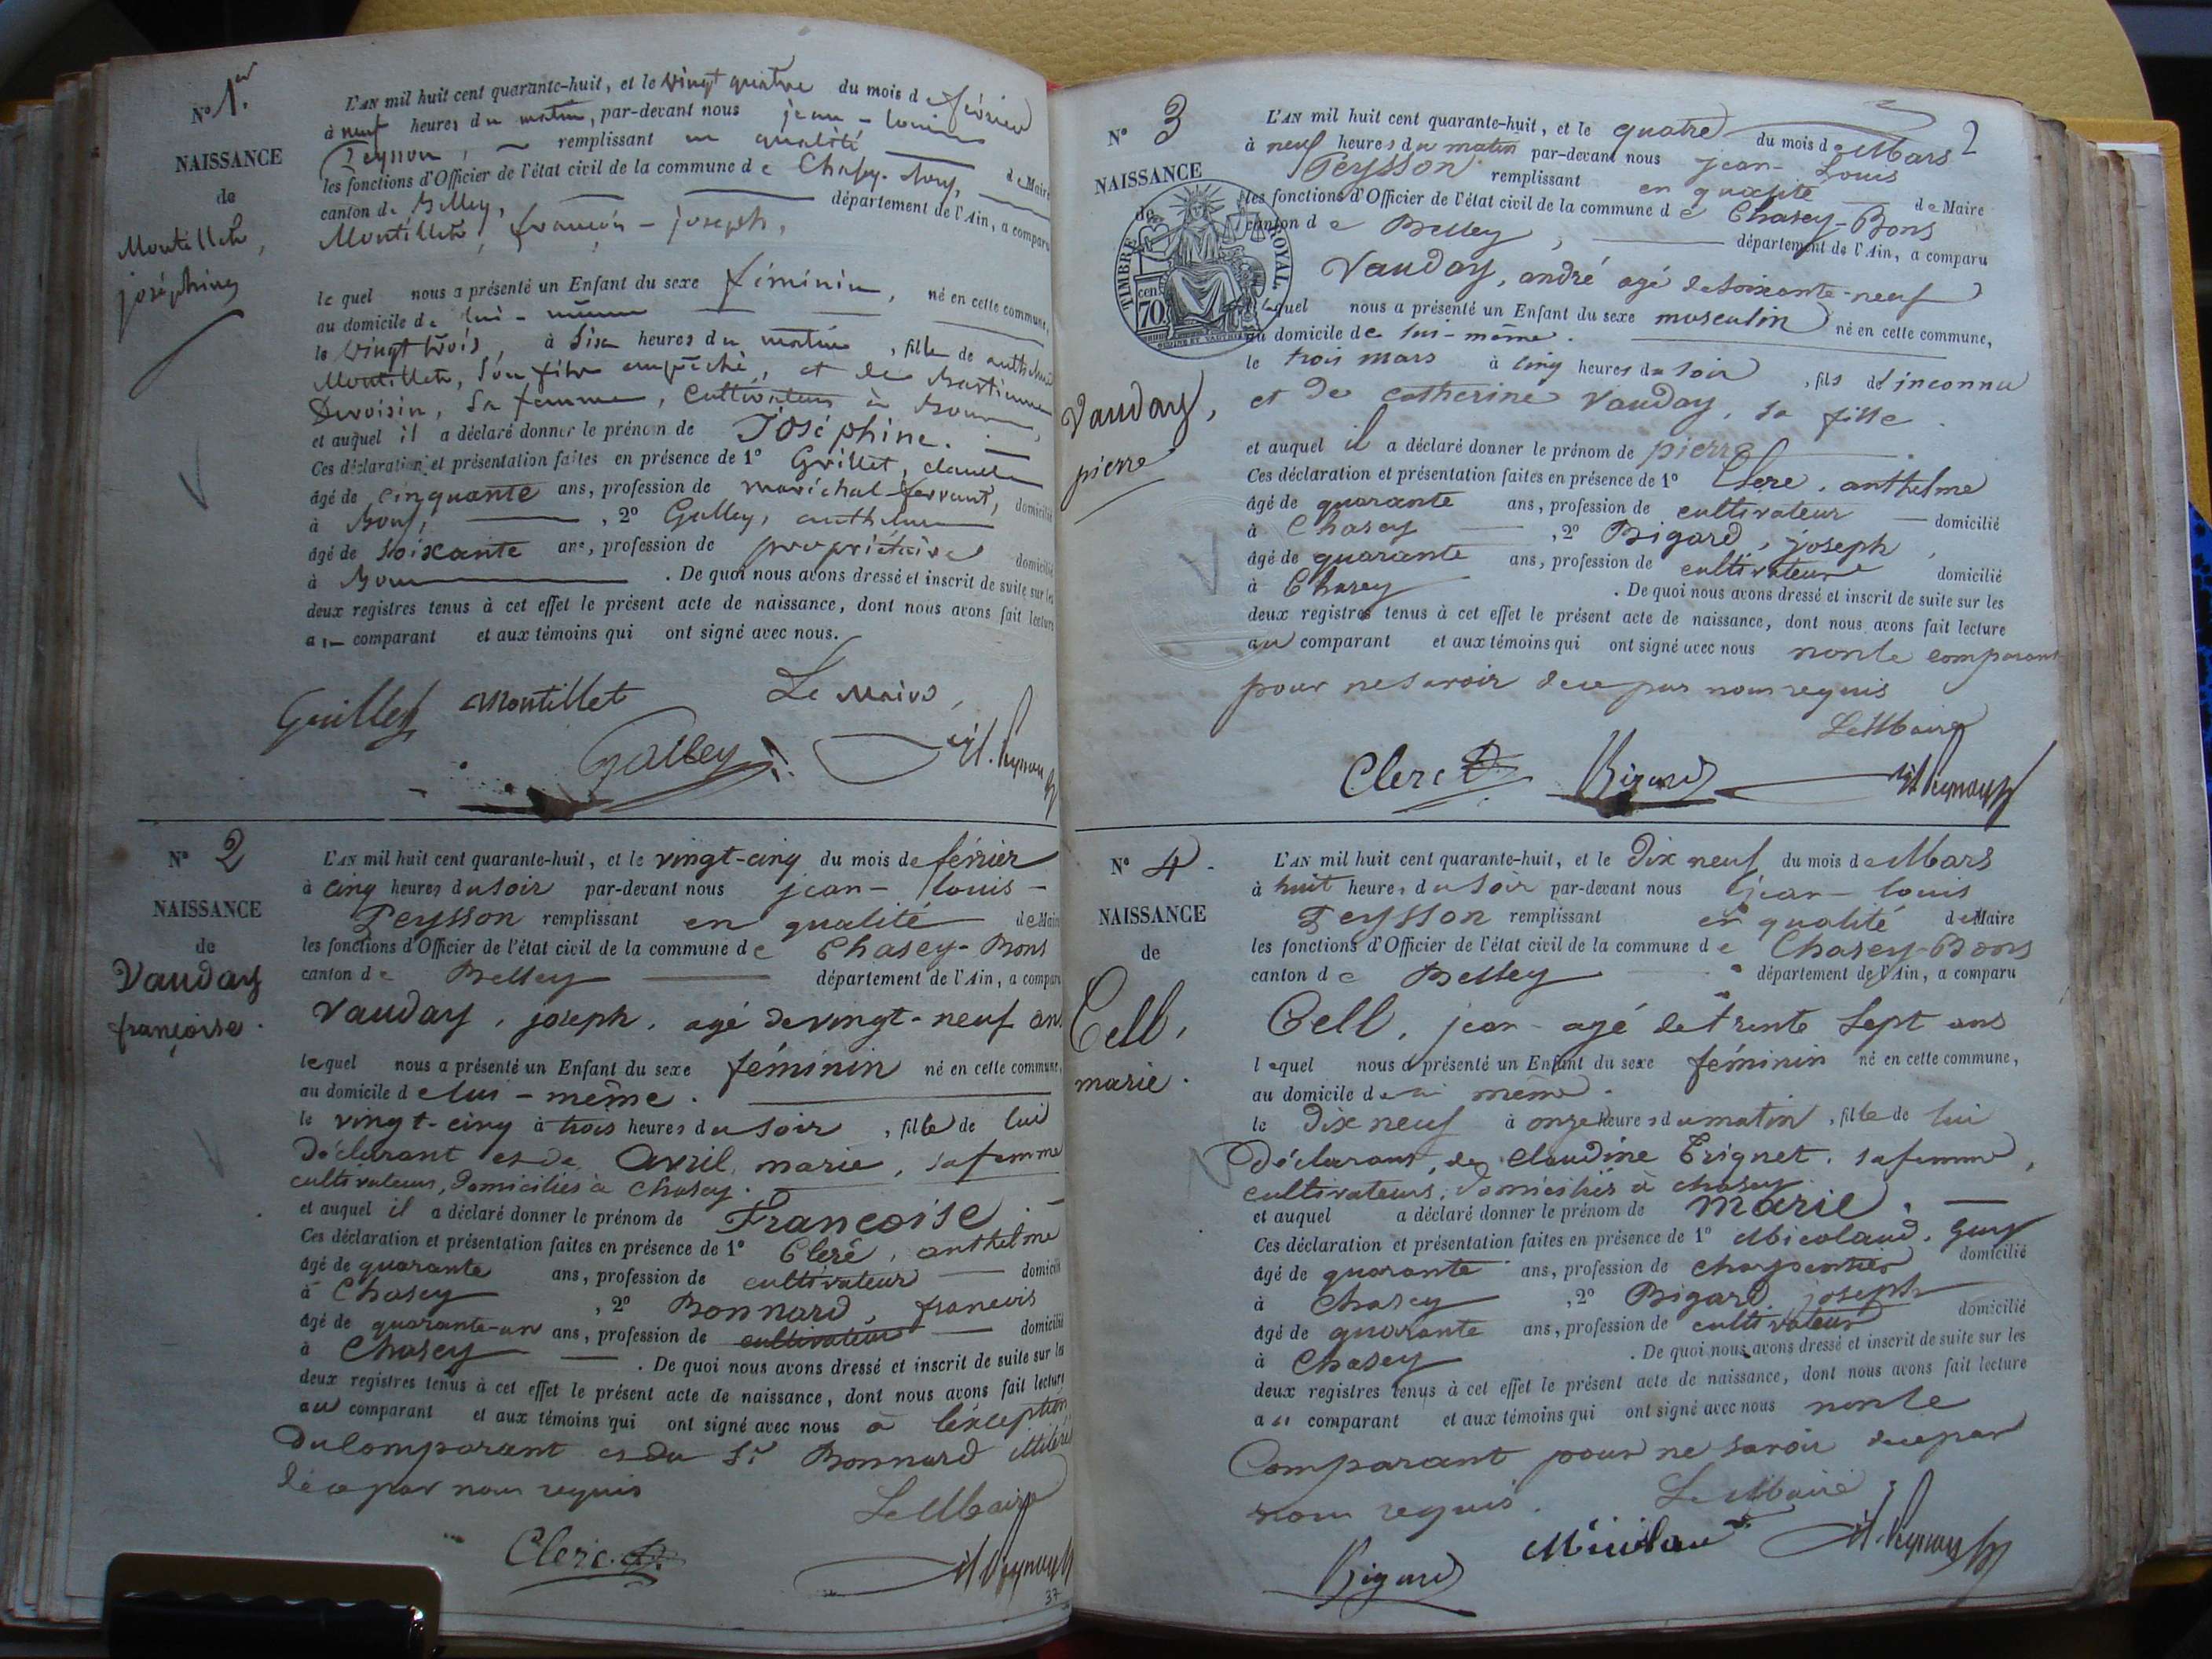 N° 1er
NAISSANCE
de
Montillet,
joséphine
L'AN mil huit cent quarante-huit, et le vingt quatre du mois de février
à neuf heures du matin, par-devant nous jean-louis
Peysson, remplissant en qualité de Maire
les fonctions d'Officier de l'état civil de la commune de Chasey-Bons,
canton de Belley, département de l'Ain, a comparu
Montillet, françois-joseph,
lequel nous a présenté un Enfant du sexe féminin, né en cette commune,
au domicile de lui-même
le vingt trois, à six heures du matin, fille de
Montillet, son fils empêché, et de
sa femme, cultivateurs à Bons,
et auquel il a déclaré donner le prénom de Joséphine.
Ces déclaration et présentation faites en présence de 1° Grillet, claude
âgé de cinquante ans, profession de maréchal-ferrant, domicilié
à Bons, 2° Galley, anthelme
âgé de soixante ans, profession de propriétaire domicilié
à Bons . De quoi nous avons dressé et inscrit de suite sur les
deux registres tenus à cet effet le présent acte de naissance, dont nous avons fait lecture
au comparant et aux témoins qui ont signé avec nous.
Montillet Le Maire,
Galley
N° 2
NAISSANCE
de
Vauday
françoise.
L'AN mil huit cent quarante-huit, et le vingt-cinq du mois de février
à cinq heures du soir par-devant nous jean-louis-
Peysson remplissant en qualité de Maire
les fonctions d'Officier de l'état civil de la commune de Chasey-Bons
canton de Belley département de l'Ain, a comparu
Vauday, joseph, agé de vingt-neuf ans
lequel nous a présenté un Enfant du sexe féminin né en cette commune,
au domicile de lui-même.
le vingt-cinq à trois heures du soir, fille de lui
Déclarant et de Avril, marie, sa femme
cultivateurs, domiciliés à chasey.
et auquel il a déclaré donner le prénom de Françoise.
Ces déclaration et présentation faites en présence de 1° Cleré, anthelme
âgé de quarante ans, profession de cultivateur domicilié
à Chasey, 2° Bonnard, francois
âgé de quarante-un ans, profession de cultivateur domicilié
à Chasey . De quoi nous avons dressé et inscrit de suite sur les
deux registres tenus à cet effet le présent acte de naissance, dont nous avons fait lecture
au comparant et aux témoins qui ont signé avec nous à l'exception
du comparant et du Sr Bonnard illitérés
de ce par nous requis
Le Maire
Clerc
37
2
N° 3
NAISSANCE
de
TIMBRE ROYAL
70 cent
Vauday,
pierre
L'AN mil huit cent quarante-huit, et le quatre du mois de Mars
à neuf heures du matin par-devant nous jean-Louis
Peysson remplissant en qualité de Maire
les fonctions d'Officier de l'état civil de la commune de Chasey-Bons
canton de Belley, département de l'Ain, a comparu
Vauday, andré agé de soixante-neuf
lequel nous a présenté un Enfant du sexe masculin né en cette commune,
au domicile de lui-même.
le trois mars à cinq heures du soir, fils de l'inconnu
et de catherine Vauday, sa fille.
et auquel il a déclaré donner le prénom de pierre.
Ces déclaration et présentation faites en présence de 1° Clere, anthelme
âgé de quarante ans, profession de cultivateur domicilié
à Chasey, 2° Bigard, joseph,
âgé de quarante ans, profession de cultivateur domicilié
à Chasey . De quoi nous avons dressé et inscrit de suite sur les
deux registres tenus à cet effet le présent acte de naissance, dont nous avons fait lecture
au comparant et aux témoins qui ont signé avec nous non le comparant
pour ne savoir de ce par nous requis
Le Maire
Clerc Bigard
N° 4.
NAISSANCE
de
Cell,
marie.
L'AN mil huit cent quarante-huit, et le Dix neuf du mois de Mars
à huit heures du soir par-devant nous jean-louis
Peysson remplissant en qualité de Maire
les fonctions d'Officier de l'état civil de la commune de Chasey-Bons
canton de Belley département de l'Ain, a comparu
Cell, jean-agé de trente sept ans
lequel nous a présenté un Enfant du sexe féminin né en cette commune,
au domicile de lui même.
le Dix neuf à onze heures du matin, fille de lui
Déclarant, de claudine Trignet, sa femme,
cultivateurs, domiciliés à chasey
et auquel a déclaré donner le prénom de Marie.
Ces déclaration et présentation faites en présence de 1° Micoland, Guy
âgé de quarante ans, profession de charpentier domicilié
à Chasey, 2° Bigard, joseph
âgé de quarante ans, profession de cultivateur domicilié
à Chasey . De quoi nous avons dressé et inscrit de suite sur les
deux registres tenus à cet effet le présent acte de naissance, dont nous avons fait lecture
au comparant et aux témoins qui ont signé avec nous non le
Comparant pour ne savoir de ce par
nous requis. Le Maire,
Bigard